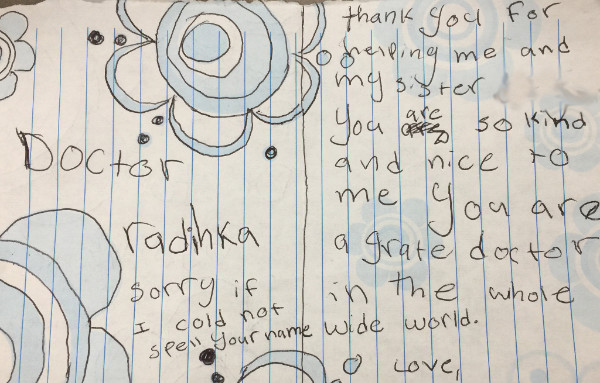 Doctor
radihka
sorry if
I cold not
spell your name
thank you for
helping me and
my sister
you are so kind
and nice to
me you are
a grate doctor
in the whole
wide world.
Love,